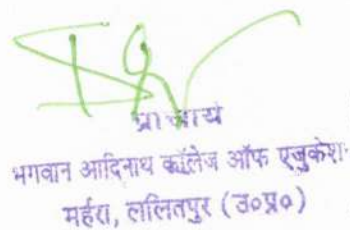 प्राचार्य
भगवान आदिनाथ कॉलेज ऑफ एजुकेश
महॅरा, ललितपुर (उ०प्र०)